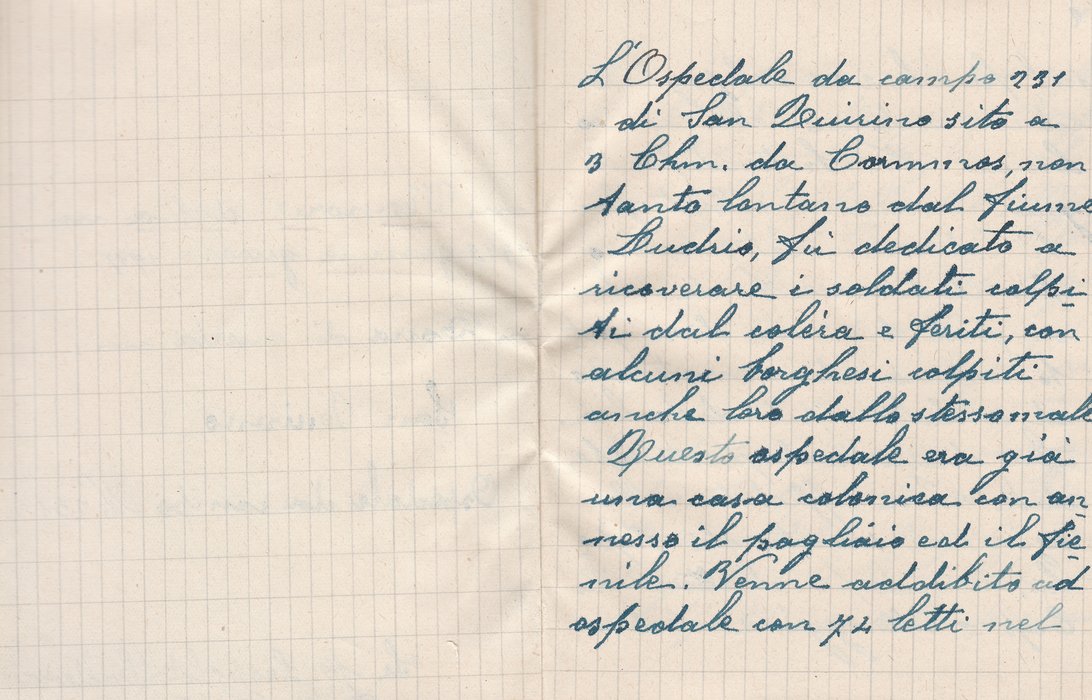 L'Ospedale da campo 231
di San Quirino sito a
3 Chm. da Cormmos, non
tanto lontano dal fiume
Iudrio, fù dedicato a
ricoverare i soldati colpi
ti dal colèra e feriti, con
alcuni borghesi colpiti
anche loro dallo stesso male
Questo ospedale era già
una casa colonica con an
nesso il pagliaio ed il fie
nile. Venne addibito ad
ospedale con 74 letti nel